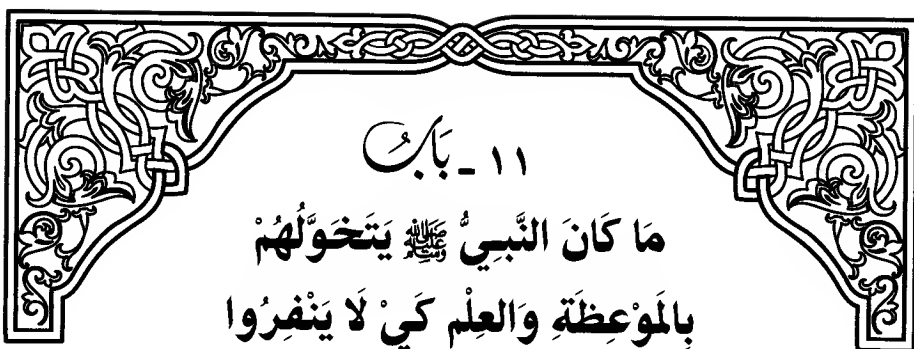 ١١ - بَابُ
مَا كَانَ النَّبِيُّ ﷺ يَتَخَوَّلُهُمْ
بِالمَوْعِظَةِ وَالعِلْمِ كَيْ لَا يَنْفِرُوا